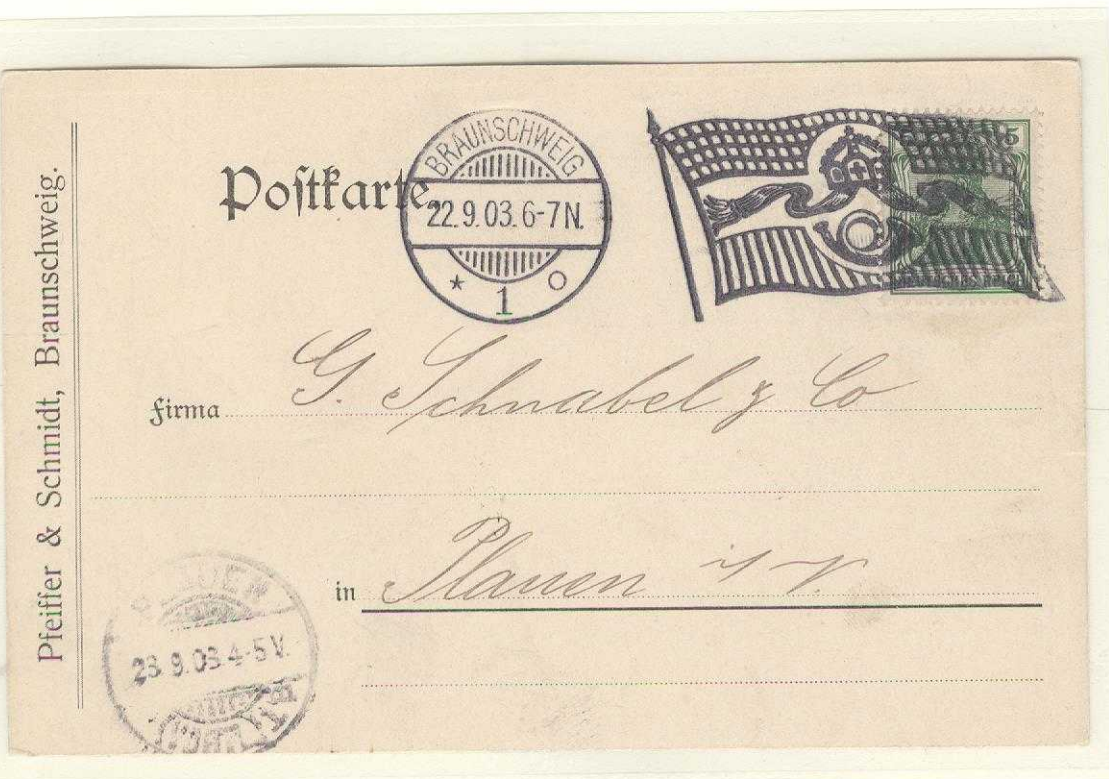 Pfeiffer & Schmidt, Braunschweig.
Postkarte
BRAUNSCHWEIG
22.9.03.6-7N.
* 1 o
5
Firma G. Schnabel & Co
in Plauen i/V.
23.9.03 4-5V.